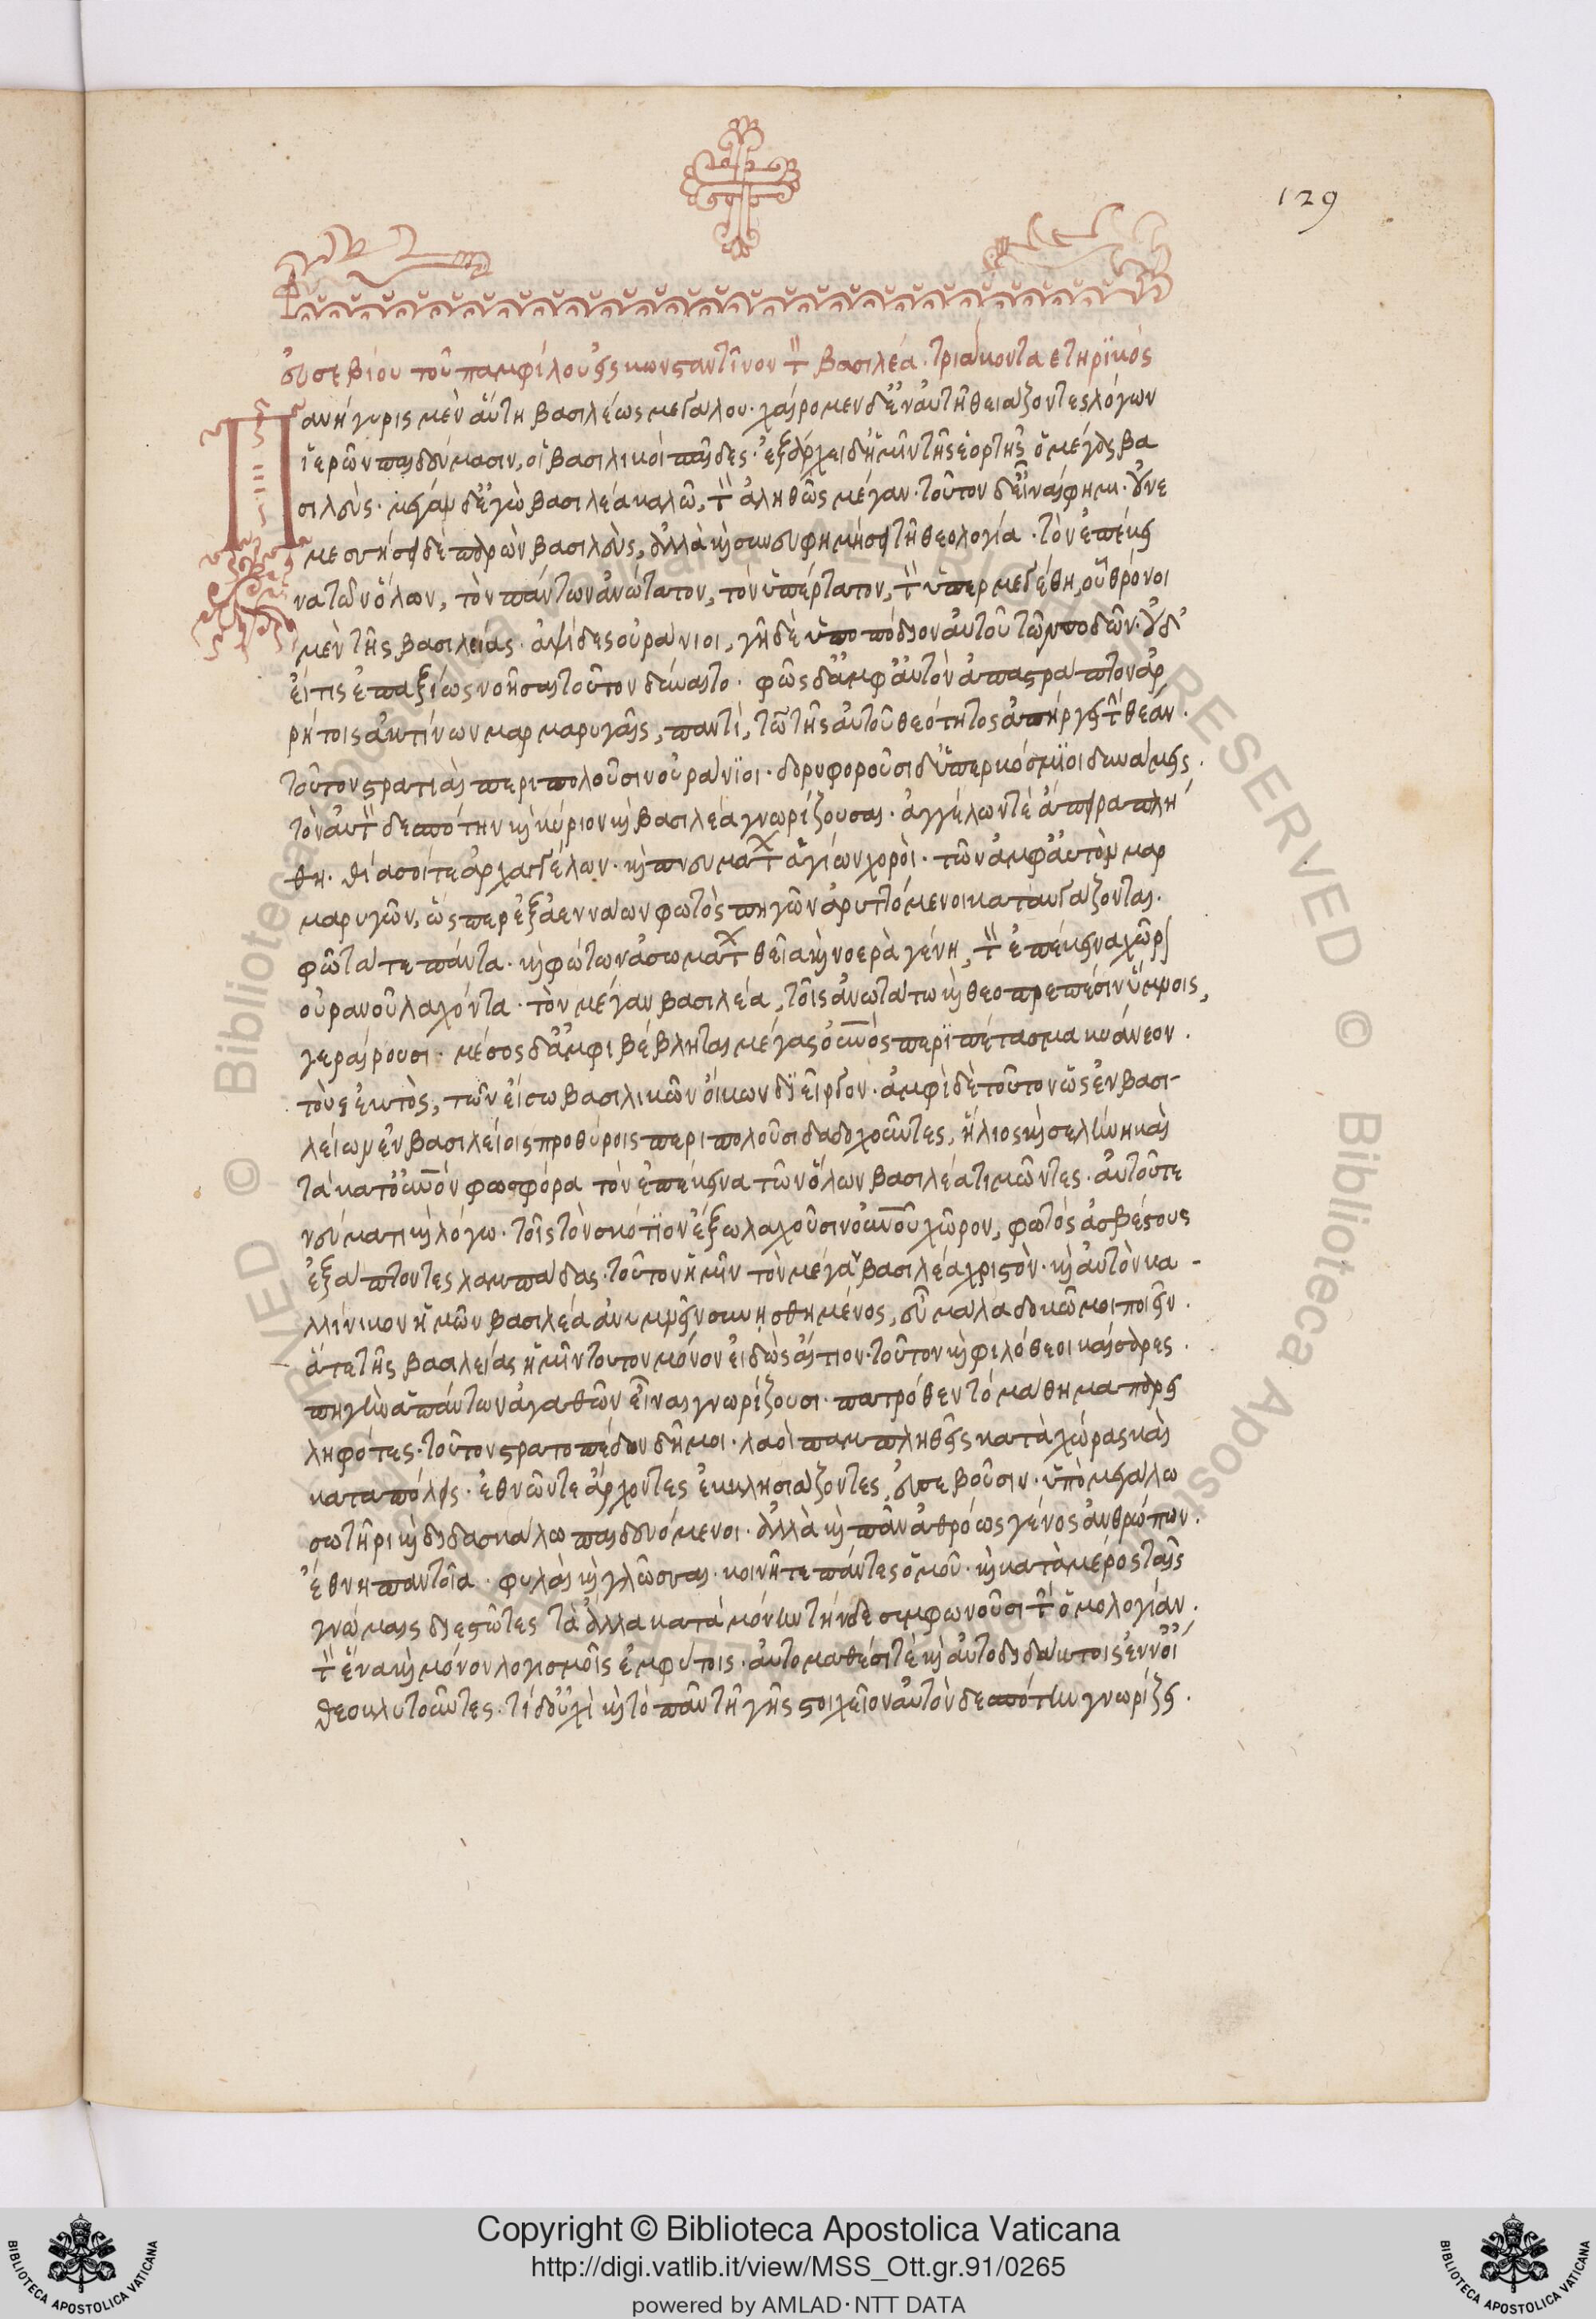 129
εὐσεβίου τοῦ παμφίλου εἰς κωνσταντῖνον τὸν βασιλέα · τριακονταετηρϊκός
Πανήγυρις μὲν αὕτη βασιλέως μεγάλου · χαίρομεν δ' ἐν αὐτῆ θειάζοντες λόγων
ἱερῶν παιδεύμασιν, οἱ βασιλικοὶ παῖδες · ἐξάρχει δ' ἡμῖν τῆς ἑορτῆς ὁ μέγας βα
σιλεύς · μέγαν δ' ἐγὼ βασιλέα καλῶ, τὸν ἀληθῶς μέγαν · τοῦτον δ' εἶναί φημι · οὐ νε
μεσήσει δὲ παρὼν βασιλεύς, ἀλλὰ καὶ συνευφημήσει τῆ θεολογία · τὸν ἐπέκει
να τῶν ὅλων, τὸν πάντων ἀνώτατον, τὸν ὑπέρτατον, τὸν ὑπερμεγέθη, οὗ θρόνοι
μὲν τῆς βασιλείας · ἁψίδες οὐράνιοι, γῆ δὲ ὑποπόδιον αὐτοῦ τῶν ποδῶν · οὐδ'
εἴ τις ἐπαξίως νοῆσαι τοῦτον δύναιτο · φῶς δ' ἀμφ' αὐτὸν ἀπαστράπτον ἀρ
ρήτοις ἀκτίνων μαρμαρυγαῖς, παντὶ, τῶ τῆς αὐτοῦ θεότητος ἀπείργει τὴν θέαν ·
τοῦτον στρατιαὶ περιπολοῦσιν οὐράνϊοι · δορυφοροῦσι δ' ὑπερκόσμϊοι δυνάμεις ·
τὸν αὐτὸν δεσπότην καὶ κύριον καὶ βασιλέα γνωρίζουσαι · ἀγγέλων τὲ ἄπειρα πλή
θη · θίασοί τε ἀρχαγγέλων · καὶ πνευμάτων ἁγίων χοροὶ · τῶν ἀμφ' αὐτὸν μαρ
μαρυγῶν, ὥσπερ ἐξ ἀεννάων φωτὸς πηγῶν ἀρυττόμενοι καταυγάζονται ·
φῶτά τε πάντα · καὶ φώτων ἀσωμάτων θεῖα καὶ νοερὰ γένη, τὸν ἐπέκεινα χῶρον
οὐρανοῦ λαχόντα · τὸν μέγαν βασιλέα, τοῖς ἀνωτάτω καὶ θεοπρεπέσιν ὕμνοις,
γεραίρουσι · μέσος δ' ἀμφιβέβληται μέγας ὁ οὐνὸς περϊπέτασμα κυάνεον ·
τοὺς ἐκτὸς, τῶν εἴσω βασιλικῶν οἴκων διεῖργον · ἀμφὶ δὲ τοῦτον ὡς ἐν βασι-
λείων ἐν βασιλείοις προθύροις περιπολοῦσι δαδουχοῦντες, ἥλιος καὶ σελήνη καὶ
τὰ κατ' οὐνὸν φωσφόρα τὸν ἐπέκεινα τῶν ὅλων βασιλέα τιμῶντες · αὐτοῦ τε
νεύματι καὶ λόγω · τοῖς τὸν σκότϊον ἔξω λαχοῦσιν οὐνοῦ χῶρον, φωτὸς ἀσβέστους
ἐξάπτοντες λαμπάδας · τοῦτον ἡμῖν τὸν μέγαν βασιλέα χριστὸν · καὶ αὐτὸν κα-
λλίνικον ἡμῶν βασιλέα ἀνυμνεῖν συνησθημένος, εὖ μάλα δοκῶ μοι ποιεῖν ·
ἅτε τῆς βασιλείας ἡμῖν τοῦτον μόνον εἰδὼς αἴτιον · τοῦτον καὶ φιλόθεοι καίσαρες ·
πηγὴν ἁπάντων ἀγαθῶν εἶναι γνωρίζουσι · πατρόθεν τὸ μάθημα παρει
ληφότες · τοῦτον στρατοπέδων δῆμοι · λαοὶ παμπληθεῖς κατὰ χώρας καὶ
κατὰ πόλεις · ἐθνῶν τε ἄρχοντες ἐκκλησιάζοντες, εὐσεβοῦσιν · ὑπὸ μεγάλω
σωτῆρι καὶ διδασκάλω παιδευόμενοι · ἀλλὰ καὶ πᾶν ἀθρόως γένος ἀνθρώπων ·
ἔθνη παντοῖα · φυλαὶ καὶ γλῶσσαι · κοινῆ τε πάντες ὁμοῦ · καὶ κατὰ μέρος ταῖς
γνώμαις διεστῶτες τὰ ἄλλα κατὰ μόνην τήνδε συμφωνοῦσι τὴν ὁμολογίαν ·
τὸν ἕνα καὶ μόνον λογισμοῖς ἐμφύτοις · αὐτομαθέσι τὲ καὶ αὐτοδιδάκτοις ἐννοίαις
θεοκλυτοῦντες · τί δ' οὐχὶ καὶ τὸ πᾶν τῆ γῆς στοιχεῖον αὐτὸν δεσπότην γνωρίζει ·
Copyright © Biblioteca Apostolica Vaticana
http://digi.vatlib.it/view/MSS_Ott.gr.91/0265
powered by AMLAD·NTT DATA
BIBLIOTECA APOSTOLICA VATICANA
BIBLIOTECA APOSTOLICA VATICANA